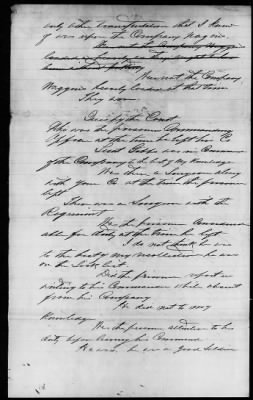 only other transportation that I know
of was upon the Company Wagon.
Were not the Company
Waggons heavily loaded at that time
They were
Question by the Court
Who was the prisoners Commanding
Officer at the time he left his Co
Lieut was in Command
of the Company to the best of my Knowledge
Was there a Surgeon along
with your Co at the time the prisoner
left
There was a Surgeon with the
Regiment
Was the prisoner considered
able for duty at the time he left
I do not think he was
to the best of my recollection he was
on the Sick list
Did the prisoner report in
writing to his Commander while absent
from his Company
He did not to my
Knowledge
Was the prisoner attentive to his
duty before leaving his Command
He was, he was a good Soldier